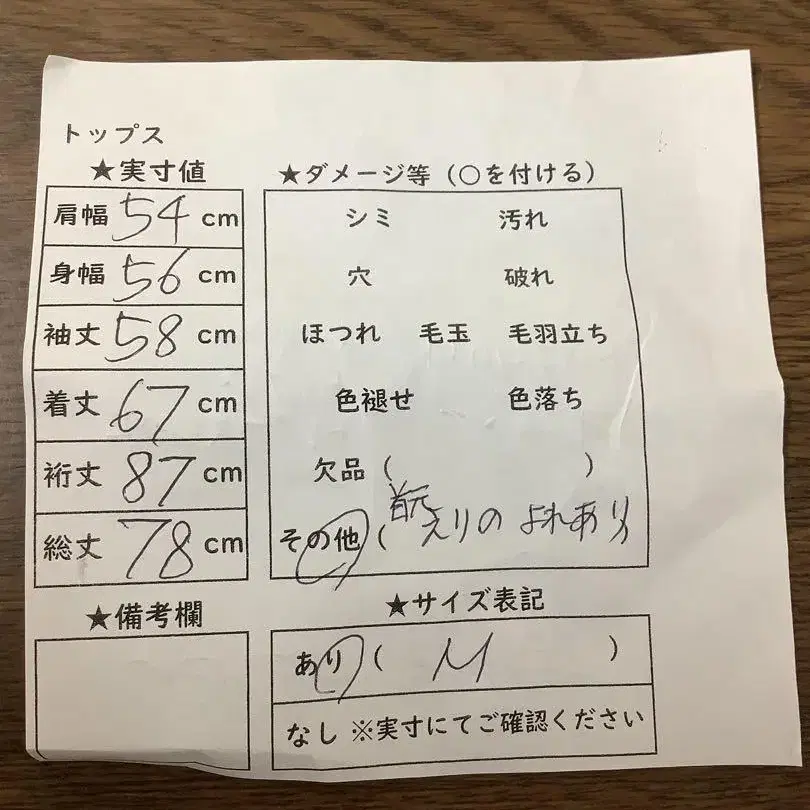 トップス
★実寸値
肩幅 54 cm
身幅 56 cm
袖丈 58 cm
着丈 67 cm
裄丈 87 cm
総丈 78 cm
★備考欄
★ダメージ等（○を付ける）
シミ 汚れ
穴 破れ
ほつれ 毛玉 毛羽立ち
色褪せ 色落ち
欠品（ ）
首元
その他（ えりの よれあり）
★サイズ表記
あり（ M ）
なし ※実寸にてご確認ください